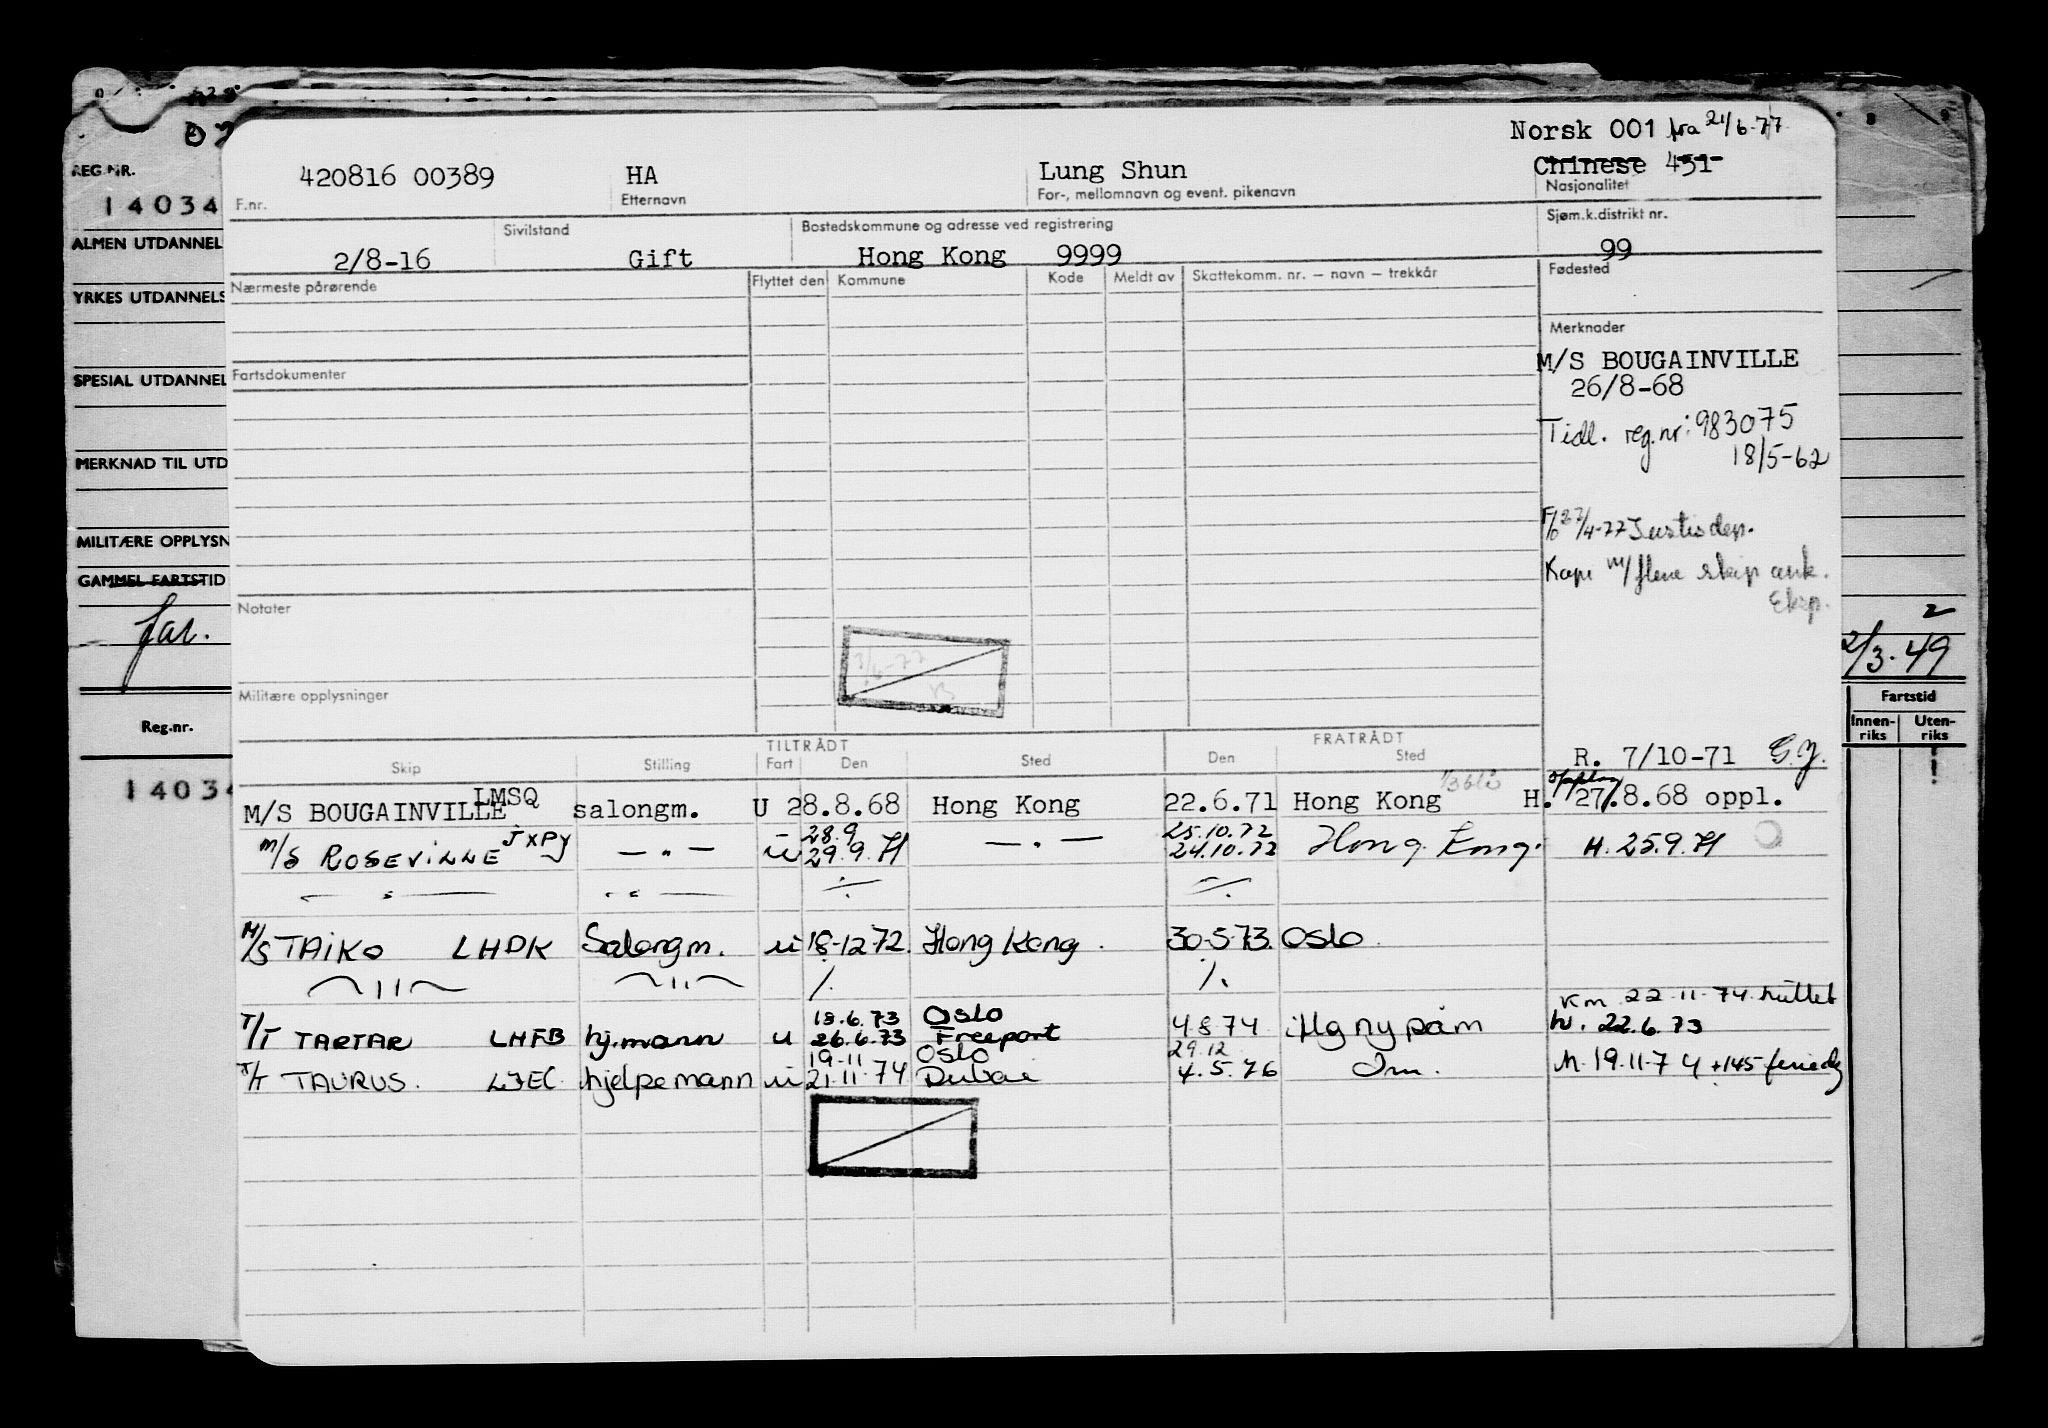 Norsk 001 fra 21/6-77
420816 00389 HA Lung Shun Chinese 451
F.nr. Etternavn For-, mellomnavn og event. pikenavn Nasjonalitet
Sivilstand Bostedskommune og adresse ved registrering Sjøm.k.distrikt nr.
2/8-16 Gift Hong Kong 9999 99
Nærmeste pårørende Flyttet den Kommune Kode Meldt av Skattekomm. nr. — navn — trekkår Fødested
Merknader
M/S BOUGAINVILLE
26/8-68
Fartsdokumenter
Tidl. reg.nr: 983075
18/5-62
27/4-77 Justisdep.
Kopi m/flere skip ank.
Eksp.
Notater
3/6-77
Militære opplysninger
TILTRÅDT FRATRÅDT
Skip Stilling Fart Den Sted Den Sted
R. 7/10-71 G.J.
M/S BOUGAINVILLE LMSQ salongm. U 28.8.68 Hong Kong 22.6.71 Hong Kong H. 27.8.68 oppl.
28.9 25.10.72
M/S ROSEVILLE JXPY — " — u 29.9.71 — " — 24.10.72 Hong Kong. H. 25.9.71
— " — — " — ./. ./.
M/S TAIKO LHDK Salongm. u 18-12-72. Hong Kong. 30-5-73. Oslo.
— " — — " — ./. ./.
Km 22.11.74 huttet
18.6.73 Oslo
T/T TARTAR LHFB hj.mann u 26.6.73 Freeport 4.8.74 Mg ny påm H. 22.6.73
19.11 Oslo 29.12
T/T TAURUS. LJEC hjelpemann u 21.11.74 Dubai 4.5.76 Im. H. 19.11.74 +145 feriedg
REG NR.
14034
ALMEN UTDANNEL
YRKES UTDANNELS
SPESIAL UTDANNEL
MERKNAD TIL UTD
MILITÆRE OPPLYSN
GAMMEL FARTSTID
far.
Reg.nr.
14034
2
2/3.49
Fartstid
Innen-
riks
Uten-
riks